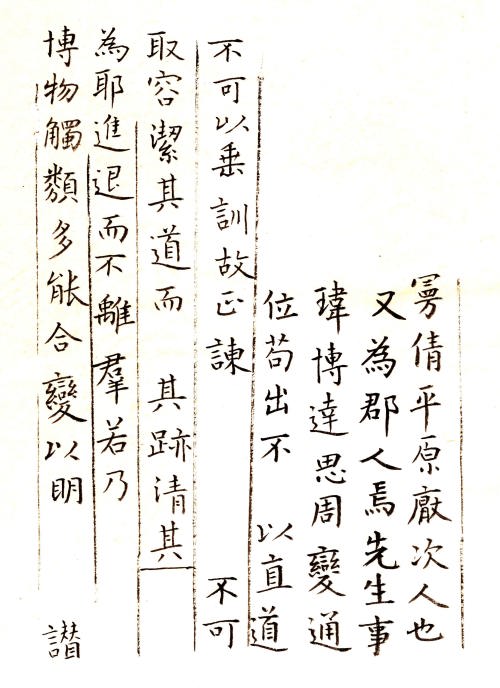 曼倩平原厭次人也
又為郡人焉先生事
瑋博達思周變通
位苟出不 以直道
不可以垂訓故正諫 不可
取容潔其道而 其跡清其
為耶進退而不離羣若乃
博物觸類多能合變以明 讃